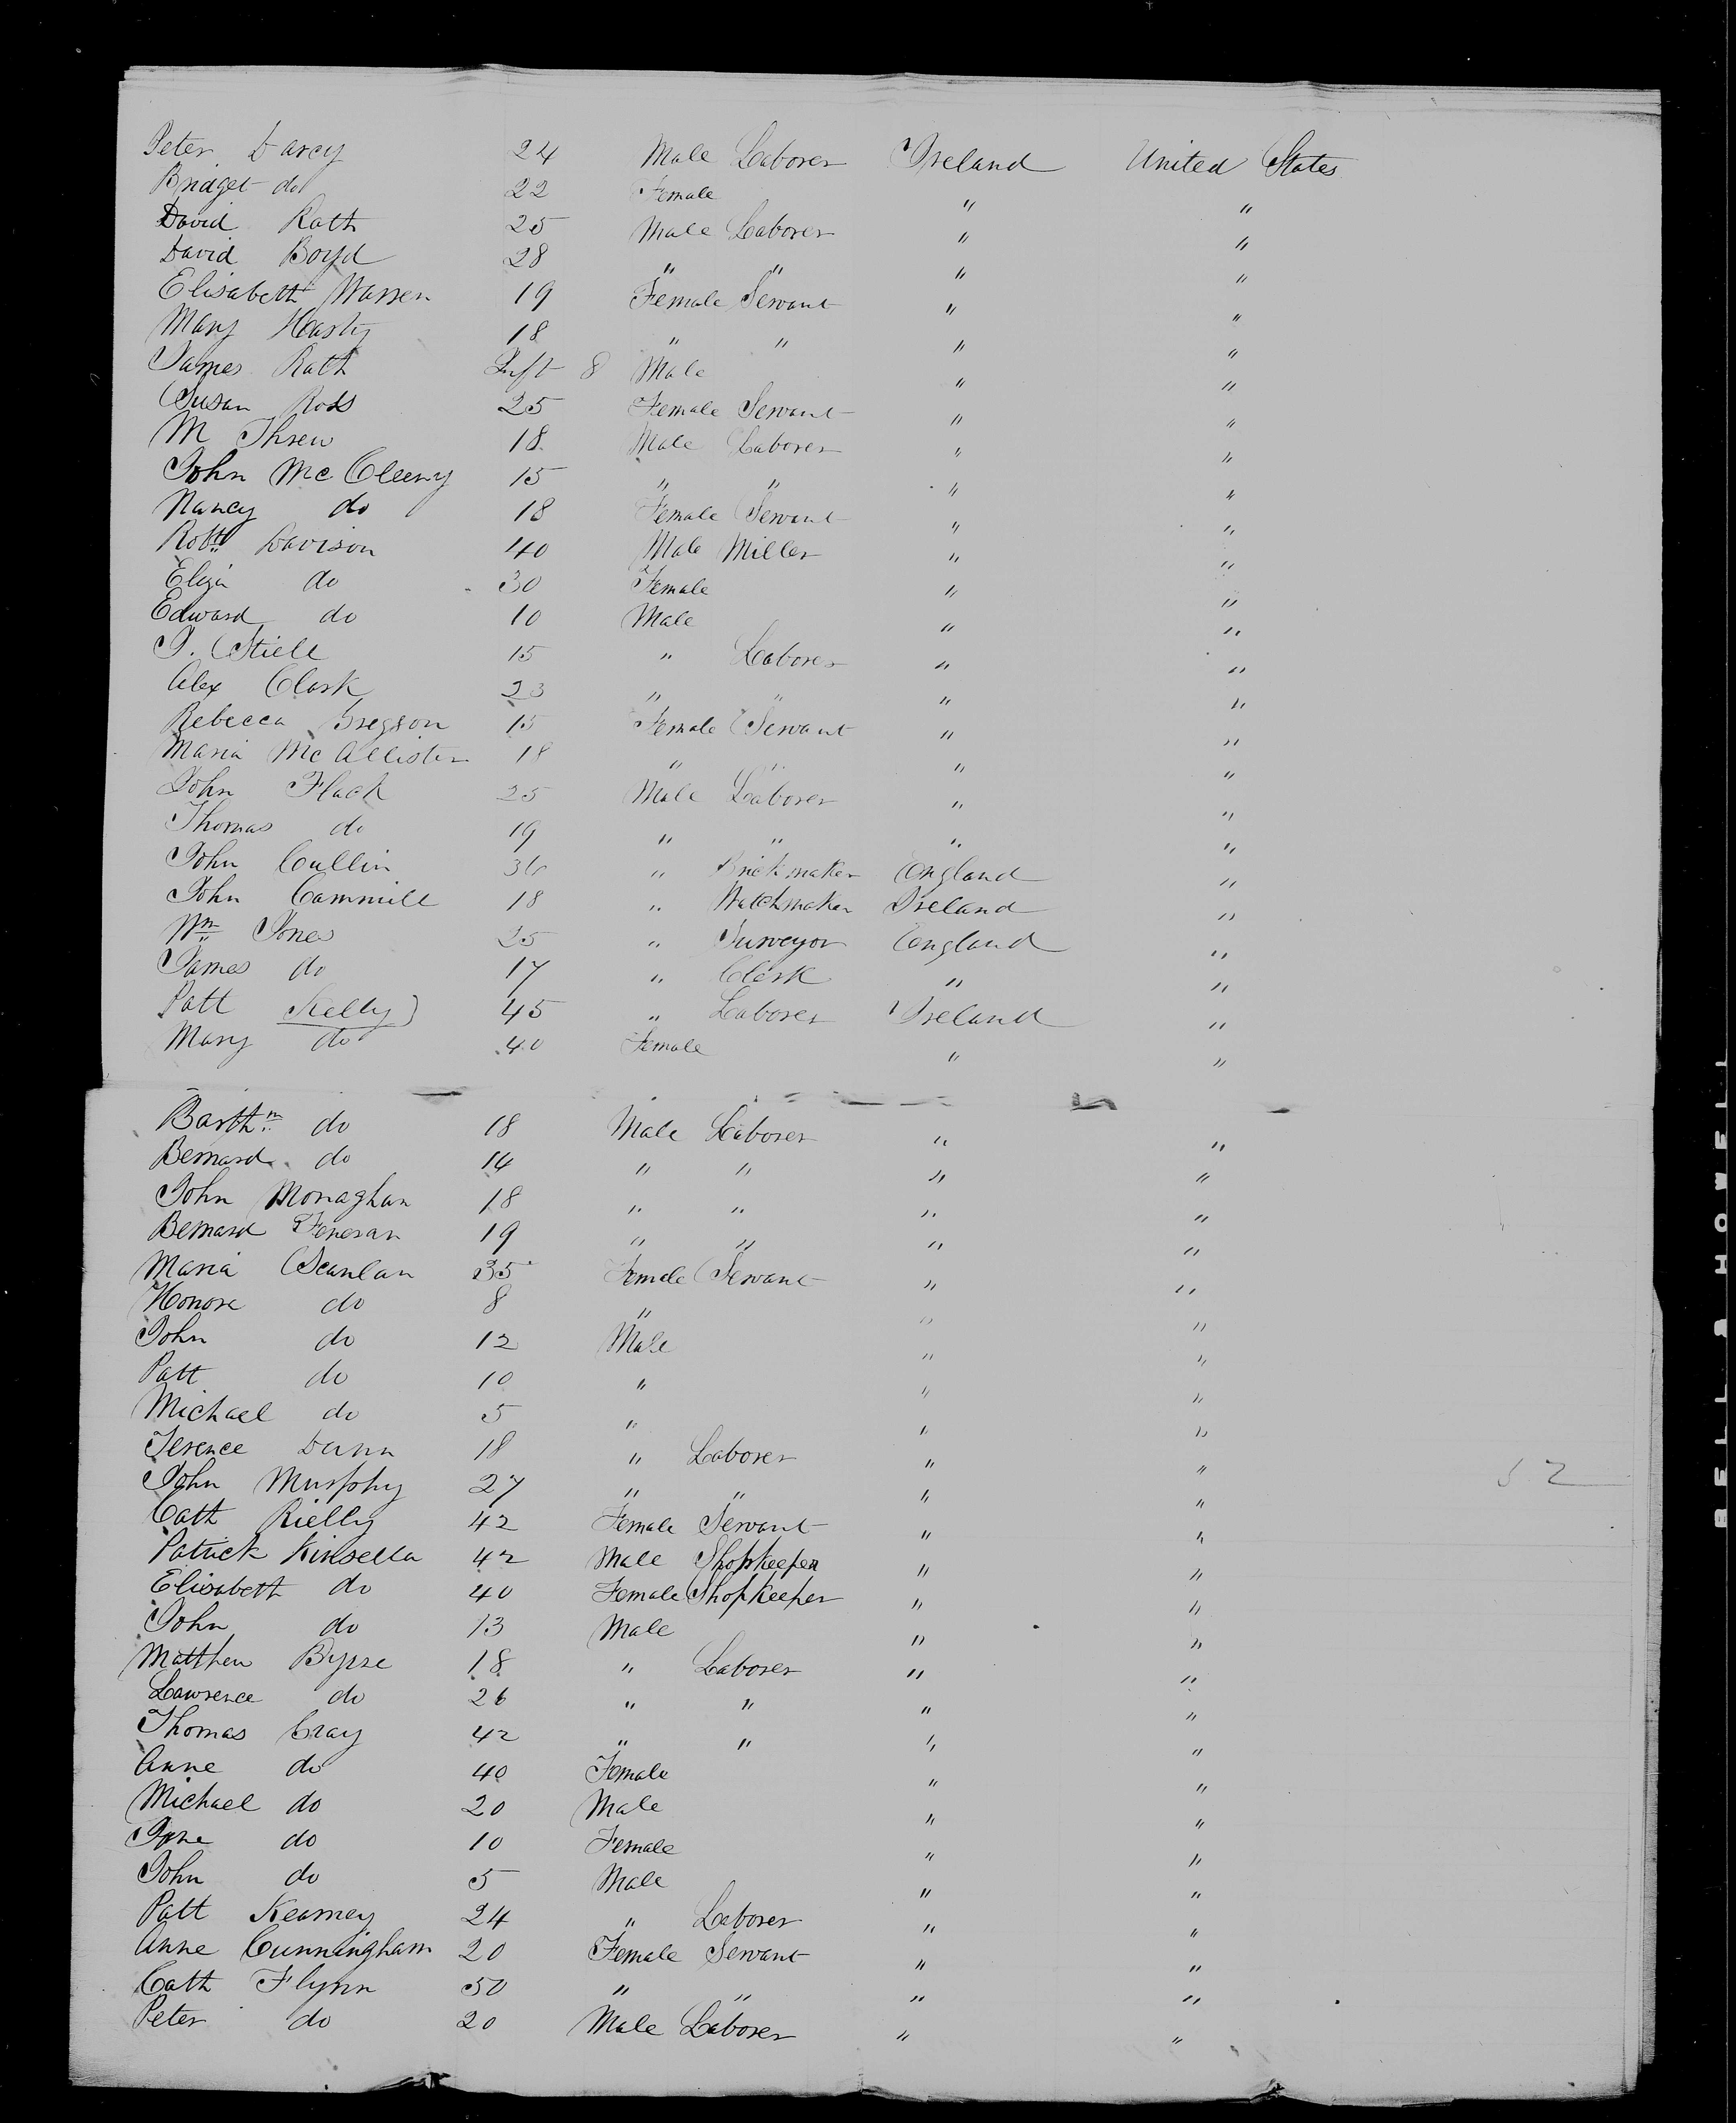 Peter Darcy 24 Male Laborer Ireland United States
Bridget do 22 Female " "
David Rath 25 Male Laborer " "
David Boyd 28 " " " "
Elisabeth Warren 19 Female Servant " "
Mary Hasty 18 " " " "
James Rath Inft 8 Male " "
Susan Ross 25 Female Servant " "
M Threw 18 Male Laborer " "
John Mc Cleeny 15 " " " "
Nancy do 18 Female Servant " "
Robt Davison 40 Male Miller " "
Eliza do 30 Female " "
Edward do 10 Male " "
J. Stiele 15 " Laborer " "
Alex Clark 23 " " " "
Rebecca Gregson 15 Female Servant " "
Maria McAllister 18 " " " "
John Flack 25 Male Laborer " "
Thomas do 19 " " " "
John Cullin 36 " Brickmaker England "
John Cammill 18 " Watchmaker Ireland "
Wm Jones 25 " Surveyor England "
James do 17 " Clerk " "
Patt Kelly 45 " Laborer Ireland "
Mary do 40 Female " "
Barthm do 18 Male Laborer " "
Bernard do 14 " " " "
John Monaghan 18 " " " "
Bernard Feneran 19 " " " "
Maria Scanlan 35 Female Servant " "
Honora do 8 " " "
John do 12 Male " "
Patt do 10 " " "
Michael do 5 " " "
Terence Dunn 18 " Laborer " "
John Murphy 27 " " " "
Cath Rielly 42 Female Servant " "
Patrick Kinsella 42 Male Shopkeeper " "
Elisabeth do 40 Female Shopkeeper " "
John do 13 Male " "
Matthew Byrne 18 " Laborer " "
Lawrence do 26 " " " "
Thomas Gray 42 " " " "
Anne do 40 Female " "
Michael do 20 Male " "
Jane do 10 Female " "
John do 5 Male " "
Patt Kearney 24 " Laborer " "
Anne Cunningham 20 Female Servant " "
Cath Flynn 50 " " " "
Peter do 20 Male Laborer " "
52
BELL & HOWELL